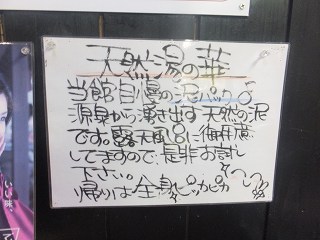 天然湯の華
当館自慢の泥パック
源泉から湧き出す天然の泥
です。露天風呂に御用意
してますので、是非お試し
下さい。
帰りは全身ピッカピカ
いい味、